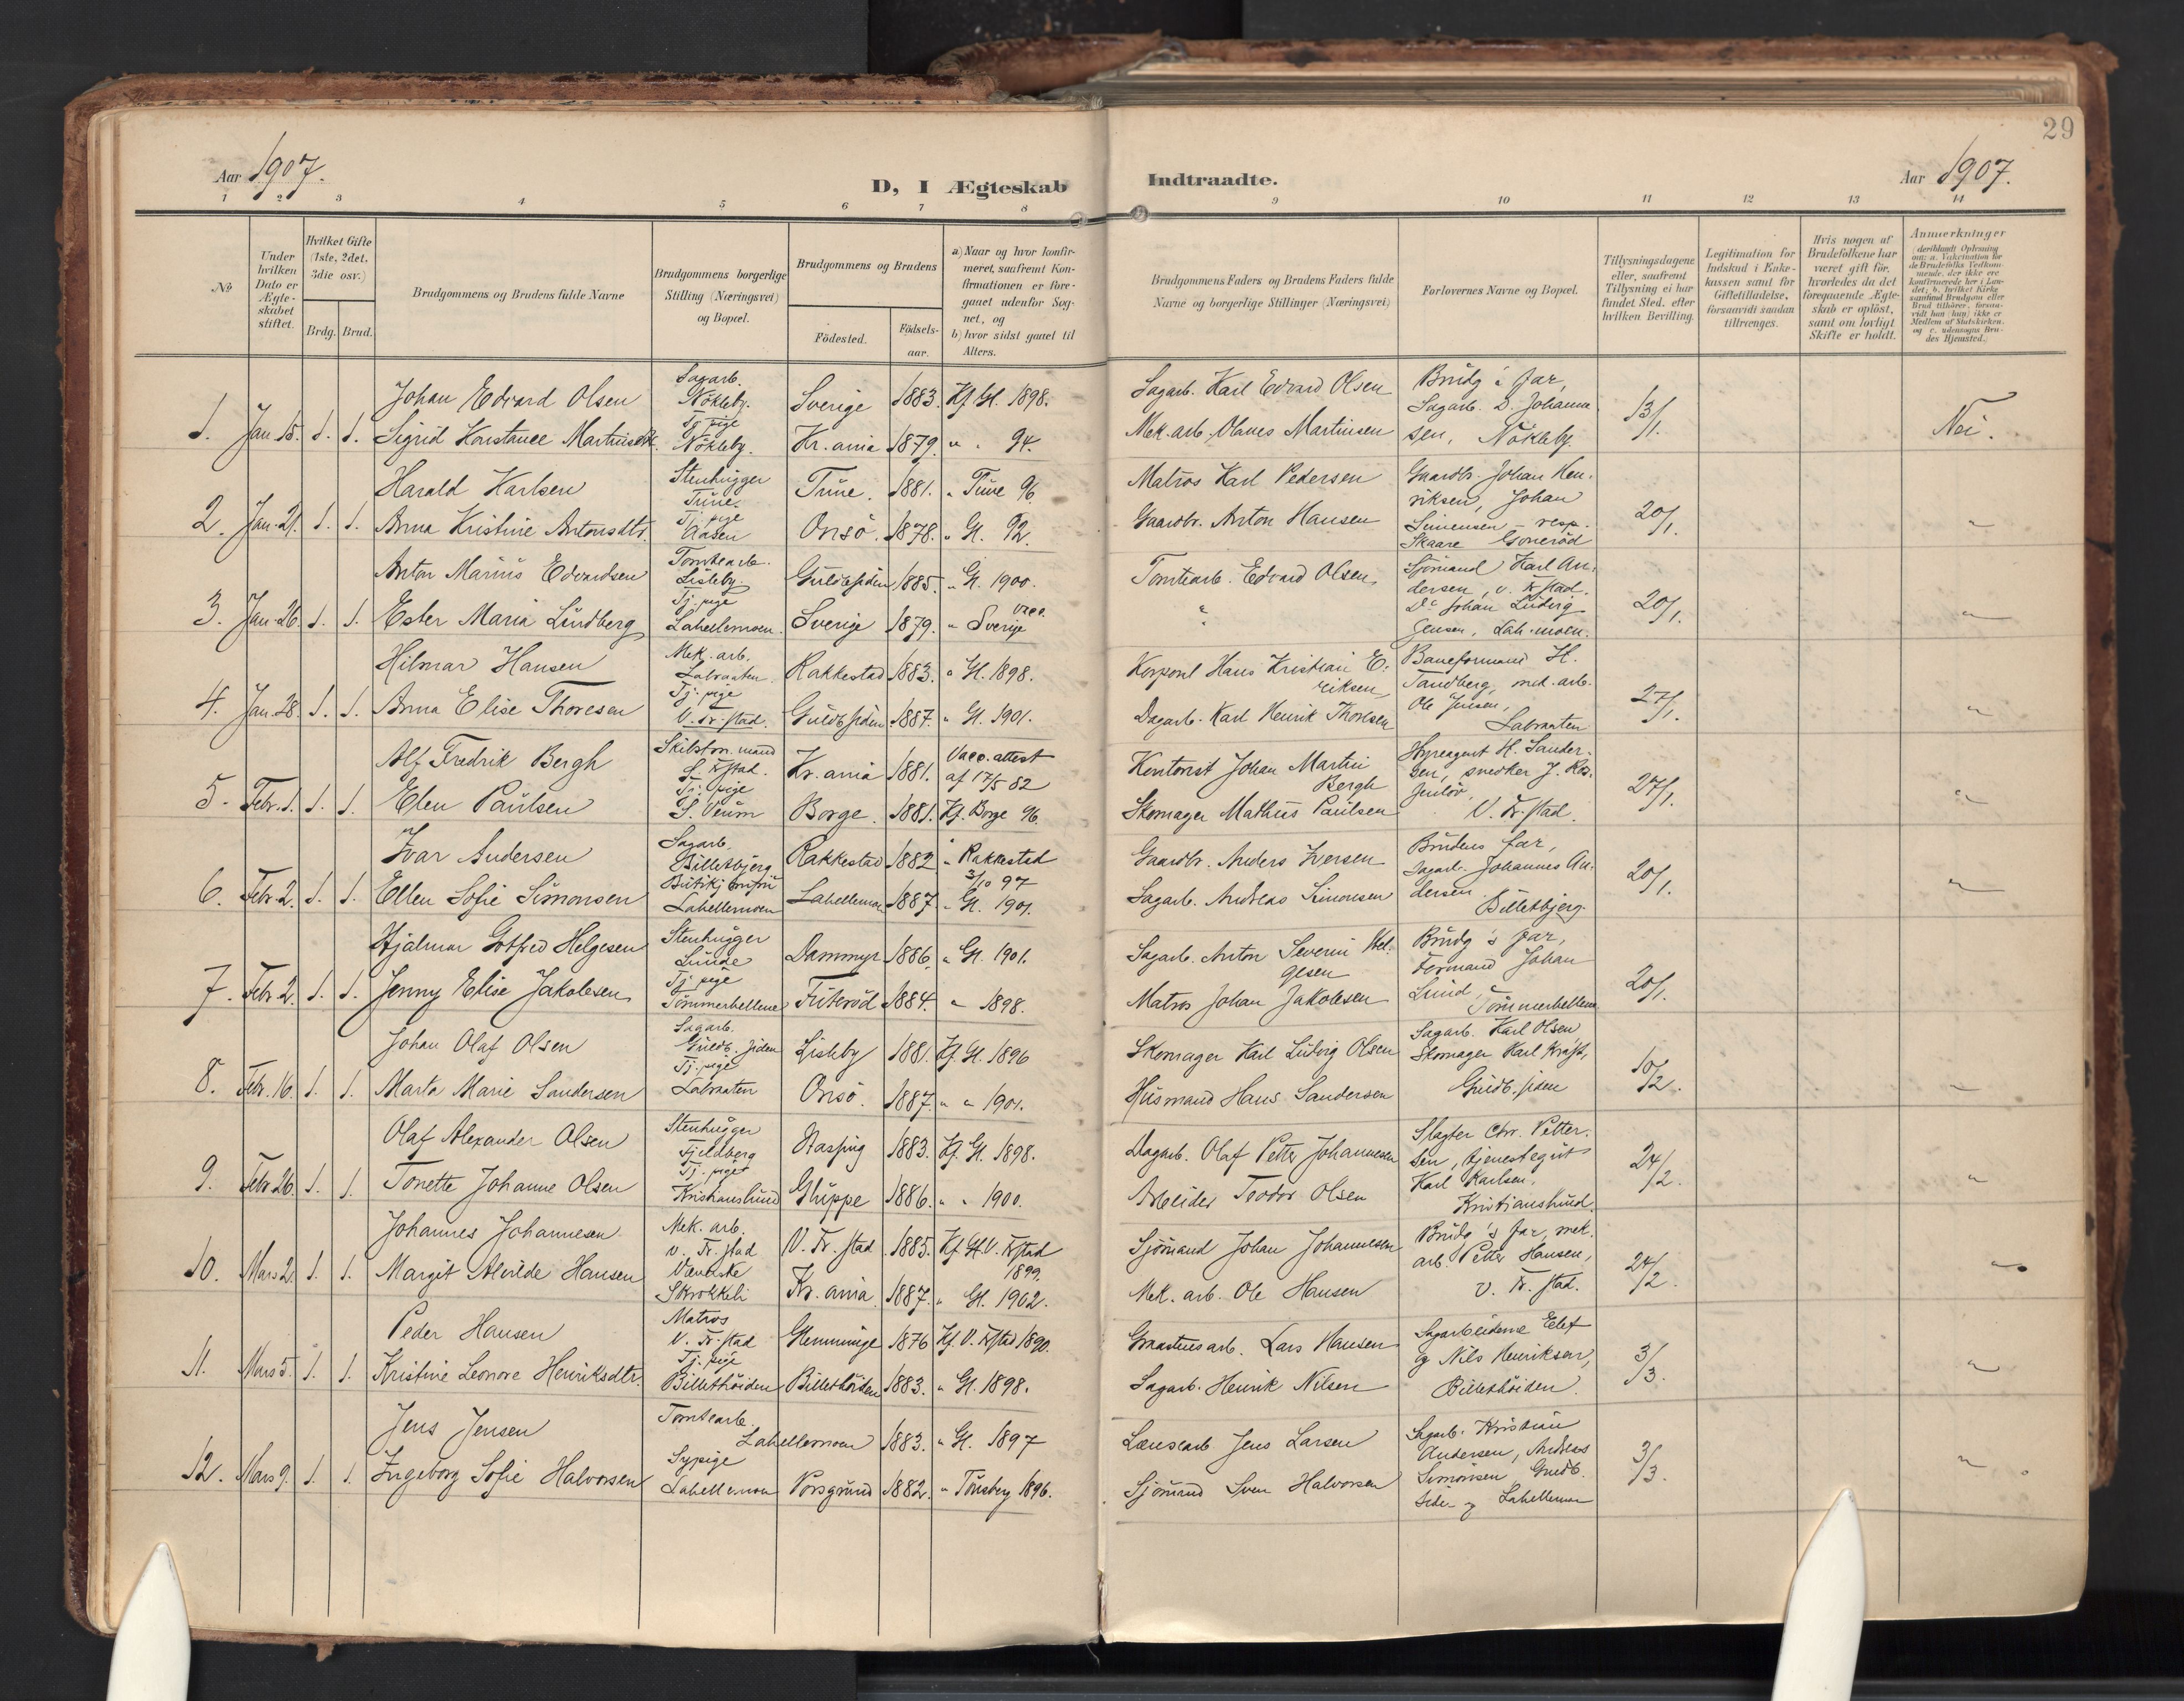 29
Aar 1907.
D, I Ægteskab
Indtraadte.
Aar 1907.
1 2 3 4 5 6 7 8 9 10 11 12 13 14
No
Under hvilken Dato er Ægteskabet stiftet.
Hvilket Gifte (1ste, 2det. 3die osv.)
Brdg. Brud.
Brudgommens og Brudens fulde Navne
Brudgommens borgerlige Stilling (Næringsvei) og Bopæl.
Brudgommens og Brudens
Födested.
Födsels-aar.
a) Naar og hvor konfirmeret, saafremt Konfirmationen er foregaaet udenfor Sognet, og
b) hvor sidst gaaet til Alters.
Brudgommens Faders og Brudens Faders fulde Navne og borgerlige Stillinger (Næringsvei)
Forlovernes Navne og Bopæl.
Tillysningsdagene eller, saafremt Tillysning ei har fundet Sted, efter hvilken Bevilling.
Legitimation for Indskud i Enkekassen samt for Giftetilladelse, forsaavidt saadan tiltrænges.
Hvis nogen af Brudefolkene har været gift för, hvorledes da det foregaaende Ægteskab er oplöst, samt om lovligt Skifte er holdt.
Anmerkninger (deriblandt Oplysning om: a. Vakcination for de Brudefolks Vedkommende, der ikke ere konfirmerede her i Landet; b. hvilket Kirkesamfund Brudgom eller Brud tilhörer, forsaavidt han (hun) ikke er Medlem af Statskirken, og c. udensogns Brudes Hjemsted.)
Johan Edvard Olsen Sagarb. Nökleby. Sverige 1883. Kf. Gl. 1898. Sagarb. Karl Edvard Olsen Brudg's far,
1. Jan. 15. 1. 1. Sigrid Konstance Tj. pige Nökleby. Kr.ania 1879. " " 94. Mek. arb. Olaves Martinsen Sagarb. D. Johannesen, Nökleby. 13/1. Nei.
Harald Karlsen Stenhugger Tune. Tune. 1881. " Tune 96. Matros Karl Pedersen Gaardbr. Johan Henriksen, Johan
2. Jan. 21. 1. 1. Anna Kristine Antonsdtr. Tj. pige Aasen Onsö. 1878. " Gl. 92. Gaardbr. Anton Hansen Simensen resp. Skaare 20/1. "
Anton Marius Edvardsen Tomtearb. Lisleby. Guldbsiden 1885. " Gl. 1900. Tomtearb. Edvard Olsen Sjömand Karl Andersen, v. Frstad.
3. Jan. 26. 1. 1. Ester Maria Lindberg Tj. pige Lahellemoen. Sverige 1879. " Sverige vacc. " Do Johan Ludvig Jensen, Lah.moen. 20/1. "
Hilmar Hansen Mek. arb. Labraaten. Rakkestad 1883. " Gl. 1898. Korporal Hans Kristian Eriksen Baneformand H. Tandberg, mek. arb.
4. Jan. 28. 1. 1. Anna Elise Thoresen Tj. pige V. Fr.stad. Guldbsiden 1887. " Gl. 1901. Dagarb. Karl Henrik Thoresen Ole Jensen, Labraaten 27/1. "
Alf Fredrik Bergh Skibstöm.mand S. Frstad. Kr.ania 1881. Vacc.attest af 17/5 82 Kontorist Johan Martin Bergh Hyreagent H. Sandersen, snedker J.
5. Febr. 1. 1. 1. Elen Paulsen Tj. pige S. Veum Borge. 1881. Kf. Borge 96. Skomager Mathias Paulsen V. Fr.stad. 27/1. "
Ivar Andersen Sagarb. Billetbjerg Rakkestad 1882 " Rakkestad 3/10 97 Gaardbr. Anders Iversen Brudens far,
6. Febr. 2. 1. 1. Ellen Sofie Simonsen Lahellemoen Lahellemoen 1887. " Gl. 1901. Sagarb. Andreas Simonsen Sagarb. Johannes Andersen Billetbjerg. 20/1. "
Hjalmar Gotfred Helgesen Stenhugger Lunde Dammyr 1886. " Gl. 1901. Sagarb. Anton Severin Helgesen Brudg's far,
7. Febr. 2. 1. 1. Jenny Elise Jakobsen Tj. pige Tömmerhellene 1884. " 1898. Matros Johan Jakobsen Formand Johan Lund Tömmerhellene 20/1.
Johan Olaf Olsen Sagarb. Guldb.siden Lisleby 1881. Kf. Gl. 1896 Skomager Karl Ludvig Olsen Sagarb. Karl Olsen
8. Febr. 16. 1. 1. Marta Marie Sandersen Tj. pige Labraaten Onsö. 1887. " " 1901. Husmand Hans Sandersen Skomager Karl Kraft, Guldb.siden 10/2. "
Olaf Alexander Olsen Stenhugger Fjeldberg 1883. Kf. Gl. 1898. Dagarb. Olaf Petter Johannesen Slagter Chr. Pettersen, tjenestegut
9. Febr. 26. 1. 1. Tonette Johanne Olsen Tj. pige Kristianslund Gluppe 1886. " " 1900. Arbeider Teodor Olsen Karl Karlsen, Kristianslund. 24/2. "
Johannes Johannesen Mek. arb. v. Fr.stad V. Fr.stad. 1885. Kf. Gl. V. Frstad 1899. Sjömand Johan Johannesen Brudg's far, mek.
10. Mars 2. 1. 1. Margit Alvilde Hansen Væverske Skrokkeli Kr.ania 1887. " Gl. 1902. Mek. arb. Ole Hansen arb. Petter Hansen, V. Fr.stad. 24/2. "
Peder Hansen Matros V. Fr.stad Glemminge 1876 Kf. V. Frstad 1890. Graastensarb. Lars Hansen Sagarbeiderne Eelef
11. Mars 5. 1. 1. Kristine Leonore Henriksdtr. Tj. pige Billethöiden Billethöiden 1883. " Gl. 1898. Sagarb. Henrik Nilsen og Nils Henriksen, Billethöiden. 3/3. "
Jens Jensen Tomtearb. Lahellemoen 1883. " Gl. 1897 Lænsearb Jens Larsen Sagarb. Kristian
12. Mars 9. 1. 1. Ingeborg Sofie Halvorsen Sypige Lahellemoen Porsgrund 1882. " Tönsberg 1896. Sjömand Sven Halvorsen Andersen, Andreas Simonsen, Guldb.siden og Lahellemoen 3/3. "